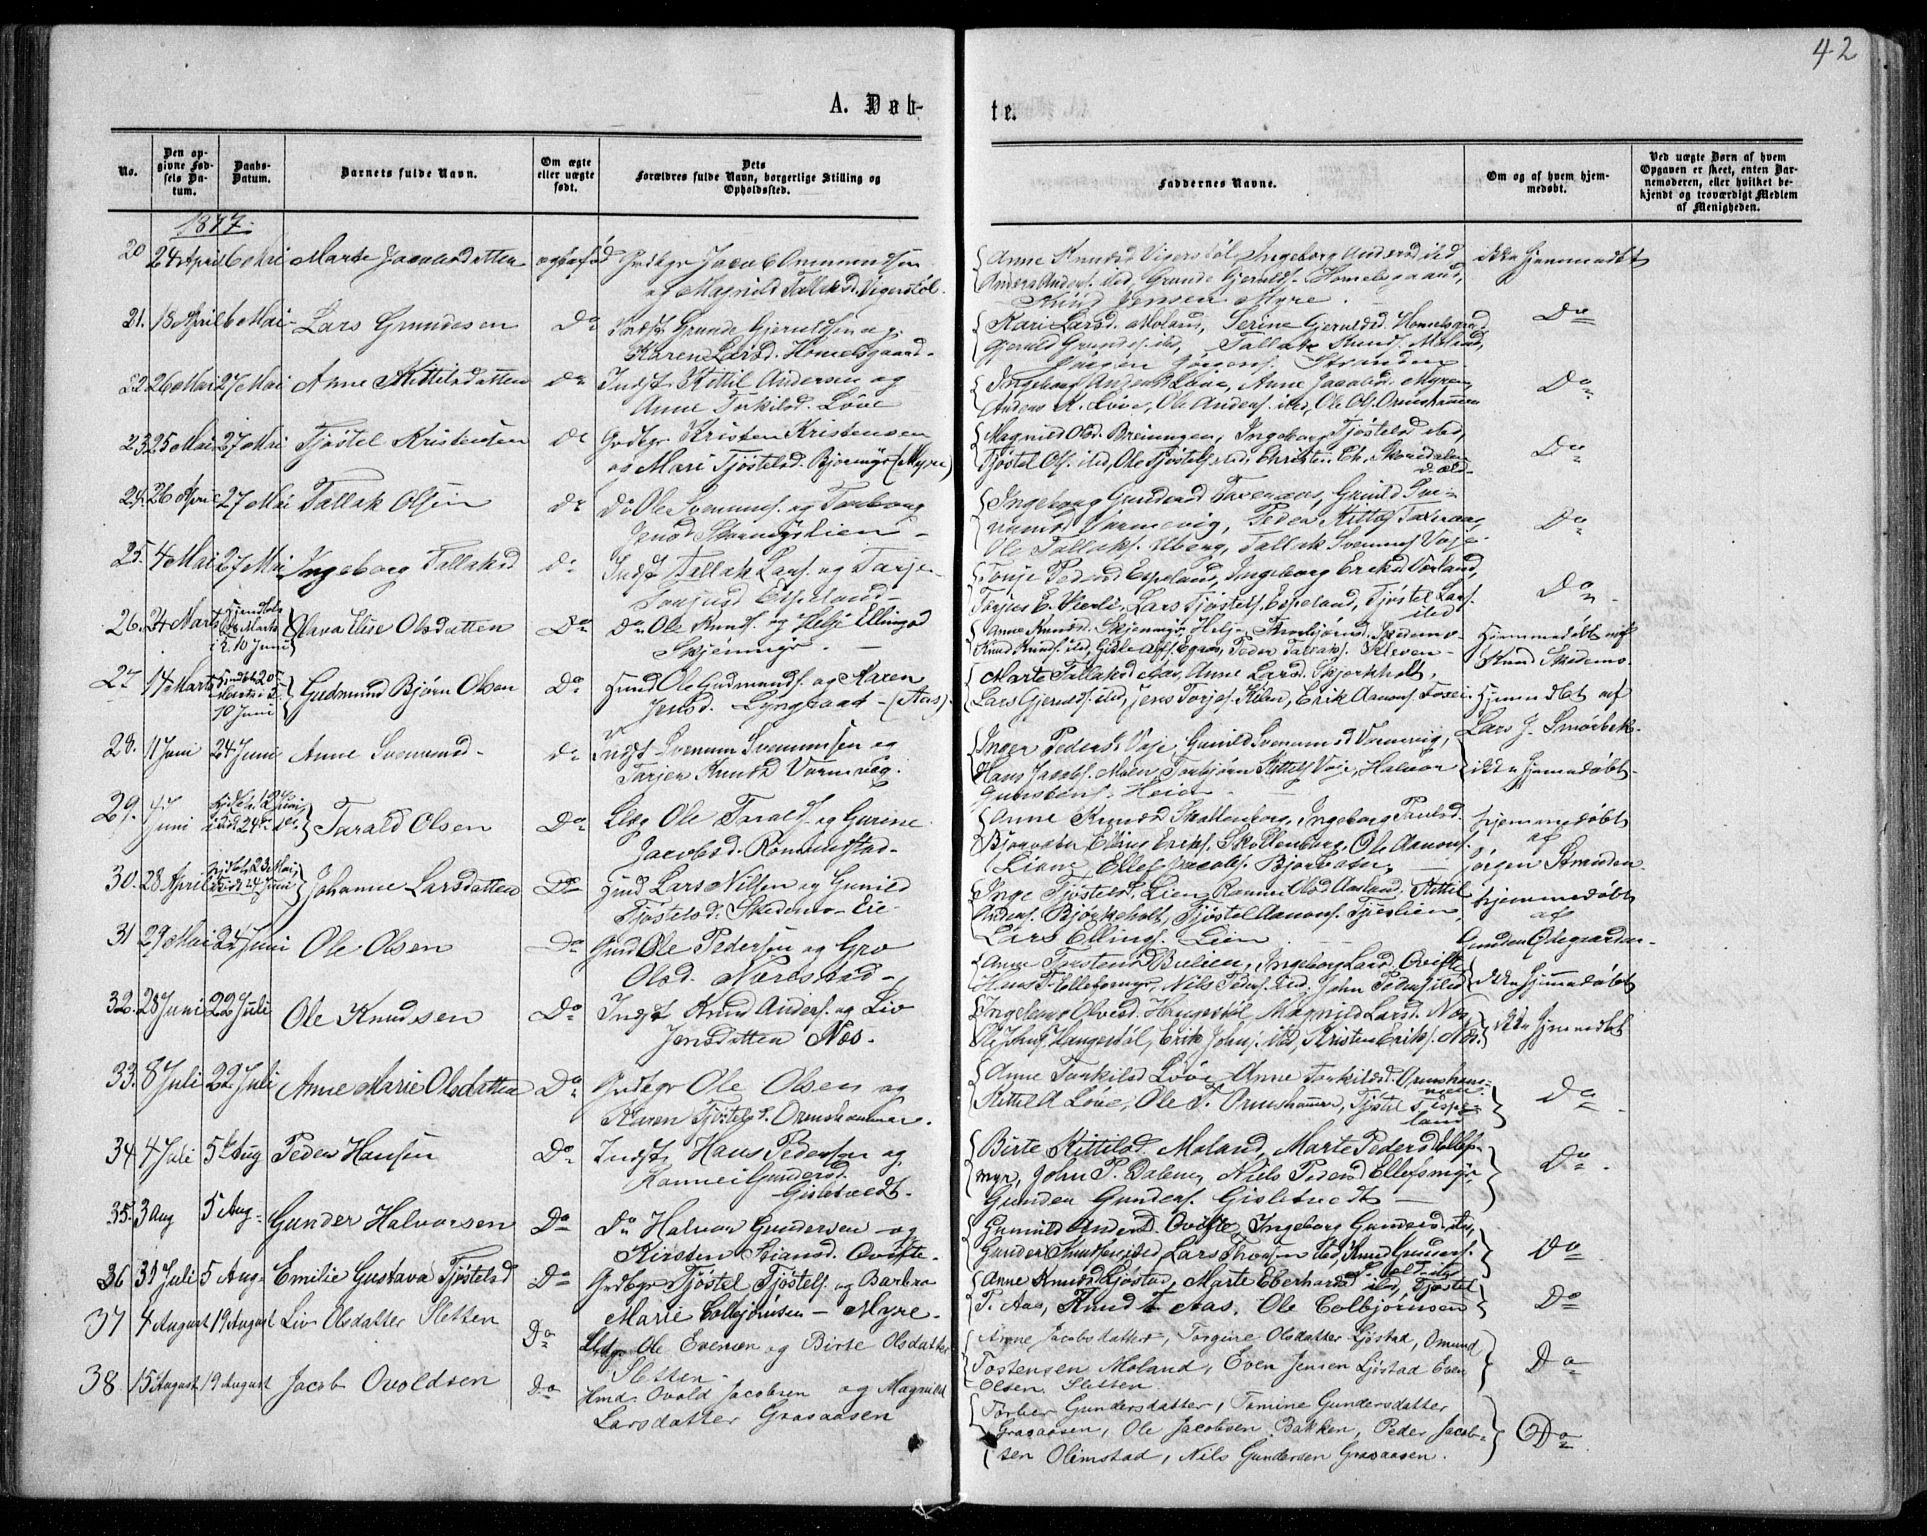 42
A. Døb-
te.
No.
Den op-
givne Fød-
sels Da-
tum.
Daabs-
Datum.
Barnets fulde Navn.
Om ægte
eller uægte
født.
Dets
Forældres fulde Navn, borgerlige Stilling og
Opholdssted.
Faddernes Navne.
Om og af hvem hjem-
medøbt.
Ved uægte Børn af hvem
Opgaven er skeet, enten Bar-
nemoderen, eller hvilket be-
kjendt og troværdigt Medlem
af Menigheden.
1877.
20 24 April 6 Mai Marte Jacobsdatten ægtefød Grdbgr Jacob Ommundsen
og Magnild Tallaksd. Vigerstøl.
Anne Knudsd Vigerstøl, Ingeborg Andersd ibd
Anders Anders. ibd, Grunde Gjerulds. Homelsgaard,
Knud Jensen Myre.
ikke hjemmedøbt
21. 18 April 6 Mai Lars Grundesen Do
Grunde Gjeruldsen og
Karen Larsd. Homelsgaard.
Kari Larsd. Moland, Serine Gjeruldsd. Homelsgrd,
Gjeruld Grundes. ibd, Tallak Knuds. Moland,
Jørgen Jørgens. Stranden
Do
22. 26 Mai 27 Mai Anne Kittelsdatten do Indst Kittil Andersen og
Anne Torkilsd. Løve
Ingeborg Andersd Løve, Anne Jacobsd. Myren,
Anders K. Løve, Ole Anders. ibd, Ole Ols. Ormshammer
Do
23. 25 Mai 27 Mai Tjøstel Kristensen do Grdbgr Kristen Kristensen
og Mari Tjøstelsd. Bjormyr (Myre)
Magnild Olsd. Breiungen, Ingeborg Tjøstelsd ibd,
Tjøstel Ols. ibd, Ole Tjøstels. ibd,
Do
24. 26 April 27 Mai Tallak Olsen do Do Ole Svenums. og Torborg
Jensd
Ingeborg Gundersd Taxeraas, Gunild Sve-
numsd Vormevig, Peder Kittels Taxeraas,
Ole Tallaks. Uberg, Tallak Svenums Voje.
Do
25. 4 Mai 27 Mai Ingeborg Tallaksd do Indst Tallak Lars. og Tarje
Torjusd Espeland
Tonje Pedersd Espeland, Ingeborg Eriksd Vorland,
Torjus E. Vierli, Lars Tjøstels. Espeland, Tjøstel Lars.
ibd
Do
26. 24 Marts 10 Juni Olava Elise Olsdatten Do do Ole Knuds. og Helje Ellingsd
Skjeimyr.
Anne Knudsd. Skjeimyr, Helje Thorbjørnsd. Skedsmo
Knud Knuds. ibd, Peder Tallaks. Kleven
Hjemmedøbt af
Knud Skedsmo
27 14 Marts 10 Juni Gudmund Bjørn Olsen Do Hmd Ole Gudmunds. og Karen
Jensd. Lyngraat (Aas).
Marte Tallaksd Aas, Anne Larsd. Skjorkholt,
Lars Gjerulds. ibd, Jens Torjes. Kilen, Erik Aanons. Fosei.
Hjemmedøbt af
Lars J. Smørbek.
28. 11 Juni 24 Juni Anne Svenumsd do Indst Svenum Svenumsen og
Tarjer Knudsd Vormevig.
Inger Pedersd Voje, Gunild Svenumsd Vormevig,
Hans Jacobs. Moen, Torbjørn Kittels Voje, Halvor
Gunstens. Heia
ikke hjemmedøbt
29. 4 Juni Tarald Olsen Do Ole Taralds. og Gurine
Jacobsd. Rommundstad.
Anne Knudsd Skallenborg, Ingeborg Paulsd.
Elling Eriks. Skollenborg, Ole Aanons.
Liane, Ellef Jacobs.
hjemmedøbt
af
Jørgen Stranden
30. 28 April 24 Juni Johanne Larsdatten Do Hmd Lars Nilsen og Gunild
Tjøstelsd. Skedsmo Eie.
Inge Tjøstelsd. Lien, Olsd Aasland, Kittil
Anders. Bjørkeholt, Tjøstel Aanons. Tjeslien,
Lars Ellings. Lien
hjemmedøbt
af
Gunden Ødegaarden
31 29 Mai 24 Juni Ole Olsen Do Ole Pedersen og Gro
Olsd. Næreestad
Anne Torstensd Bulien, Ingeborg Larsd. Ovifte,
Hans P. Ellefsmyr, Nils Peders. ibd. John Peders. ibd
ikke hjemmedøbt
32. 28 Juni 22 Juli Ole Knudsen Do Indst Knud Anders. og Liv
Jensdatten Næs.
Ingeborg Olvesd. Haugestøl, Magnild Larsd. Næs,
Ole Johns. Haugestøl, Erik Johns. ibd, Kristen Eriks. Næs.
ikke hjemmedøbt
33. 8 Juli 22 Juli Anne Marie Olsdatten Do Grdbgr Ole Olsen og
Karen Tjøstelsd. Ormshammer.
Anne Torkilsd Løve, Anne Torkildsd. Ormsham-
mer
Kittil A Løve, Ole T. Ormshammer, Tjøstel T. Espe-
land
Do
34 4 Juli 5te Aug Peder Hansen Do Indst Hans Pedersen og
Gundersd.
Gisletvedt.
Birte Kittilsd. Moland, Marte Pedersd Ellefs-
myr, John P. Dalene, Niels Peders Ellefsmyr
Gunden Gunders. Gisletvedt
Do
35. 3 Aug 5 Aug Gunder Halvorsen Do Do Halvor Gundersen og
Kirsten Stiansd. Ovifte.
Gunnild Andersd. Ovifte, Ingeborg Gundersd. ibd,
Gunder Knuds. ibd Lars Thorsen ibd, Knud Gunders.
Do
36 31 Juli 5 Aug Emilie Gustava Tjøstelsd Do Grdbgr Tjøstel Tjøstels. og Barbra
Marie Colbjørnsen - Myre.
Anne Knudsd Ljøstad, Marte Eberhardsd ibd, Tjøstel
T. Aas, Knud T. Aas. Ole Colbjørnsen
Do
37 4 August 19 August Liv Olsdatter Sletten Do Ole Evensen og Birte Olsdatter
Sletten.
Anne Jacobsdatter, Torgine Olsdatter Ljøstad, Omund
Tostensen Moland, Even Jensen Ljøstad Even
Olsen Sletten
Do
38 15 August 19 August Jacob Ovoldsen Do Hmd. Ovold Jacobsen og Magnild
Larsdatter Graaasen
Torber Gundersdatter, Tomine Gundersdatter
Graaasen, Ole Jacobsen Bakken, Peder Jacob-
sen Olimstad, Nils Gundersen Graaasen.
Do